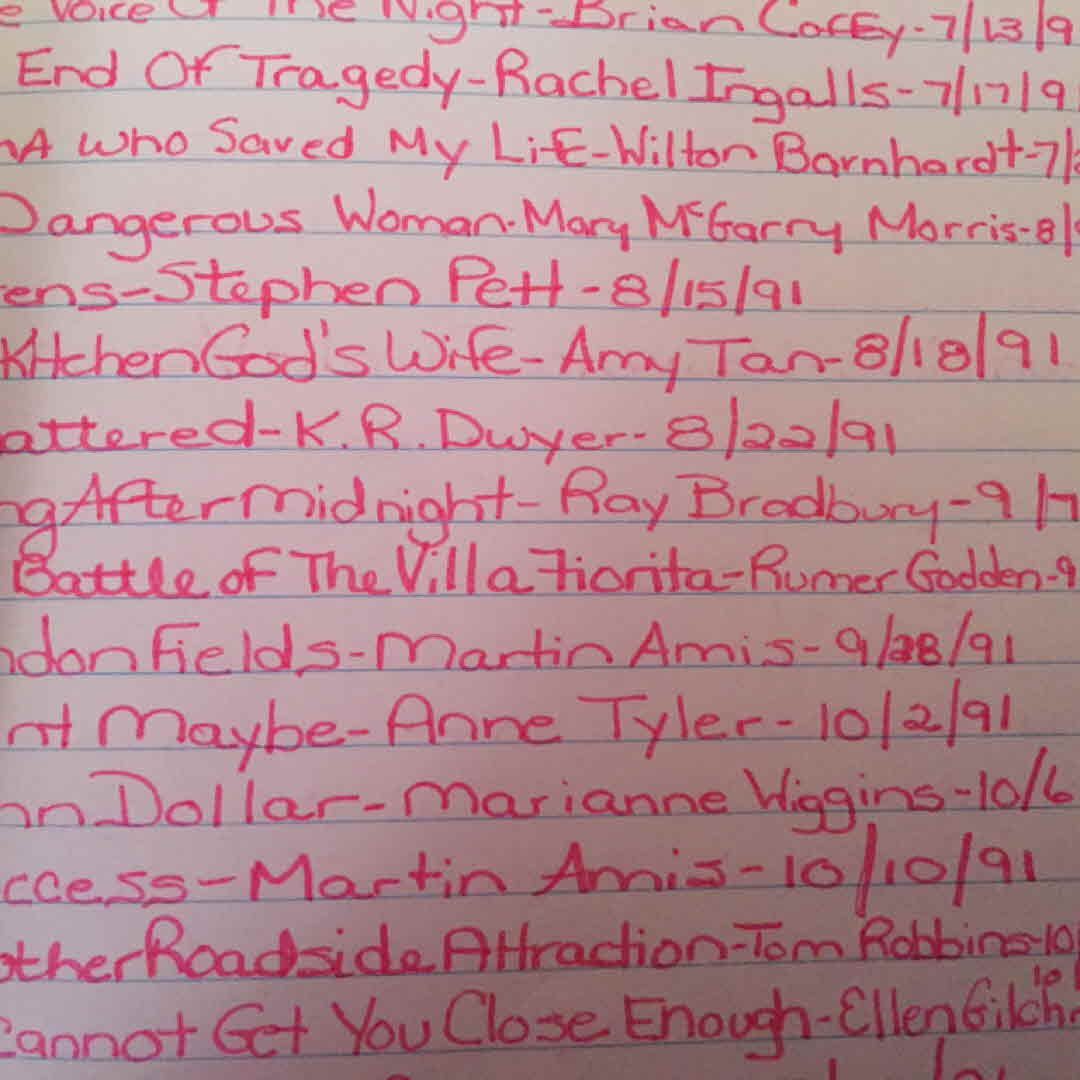 e Voice Of The Night-Brian Coffey-7/13/9
End Of Tragedy-Rachel Ingalls-7/17/9
A Who Saved My Life-Wilton Barnhardt-7/
Dangerous Woman-Mary McGarry Morris-8/
ens-Stephen Pett-8/15/91
Kitchen God's Wife-Amy Tan-8/18/91
attered-K.R.Dwyer-8/22/91
ng After Midnight-Ray Bradbury-9/7
Battle of The Villa Fiorita-Rumer Godden-9
ndon Fields-Martin Amis-9/28/91
nt Maybe-Anne Tyler-10/2/91
hn Dollar-Marianne Wiggins-10/6
ccess-Martin Amis-10/10/91
other Roadside Attraction-Tom Robbins-10/
Cannot Get You Close Enough-Ellen Gilch